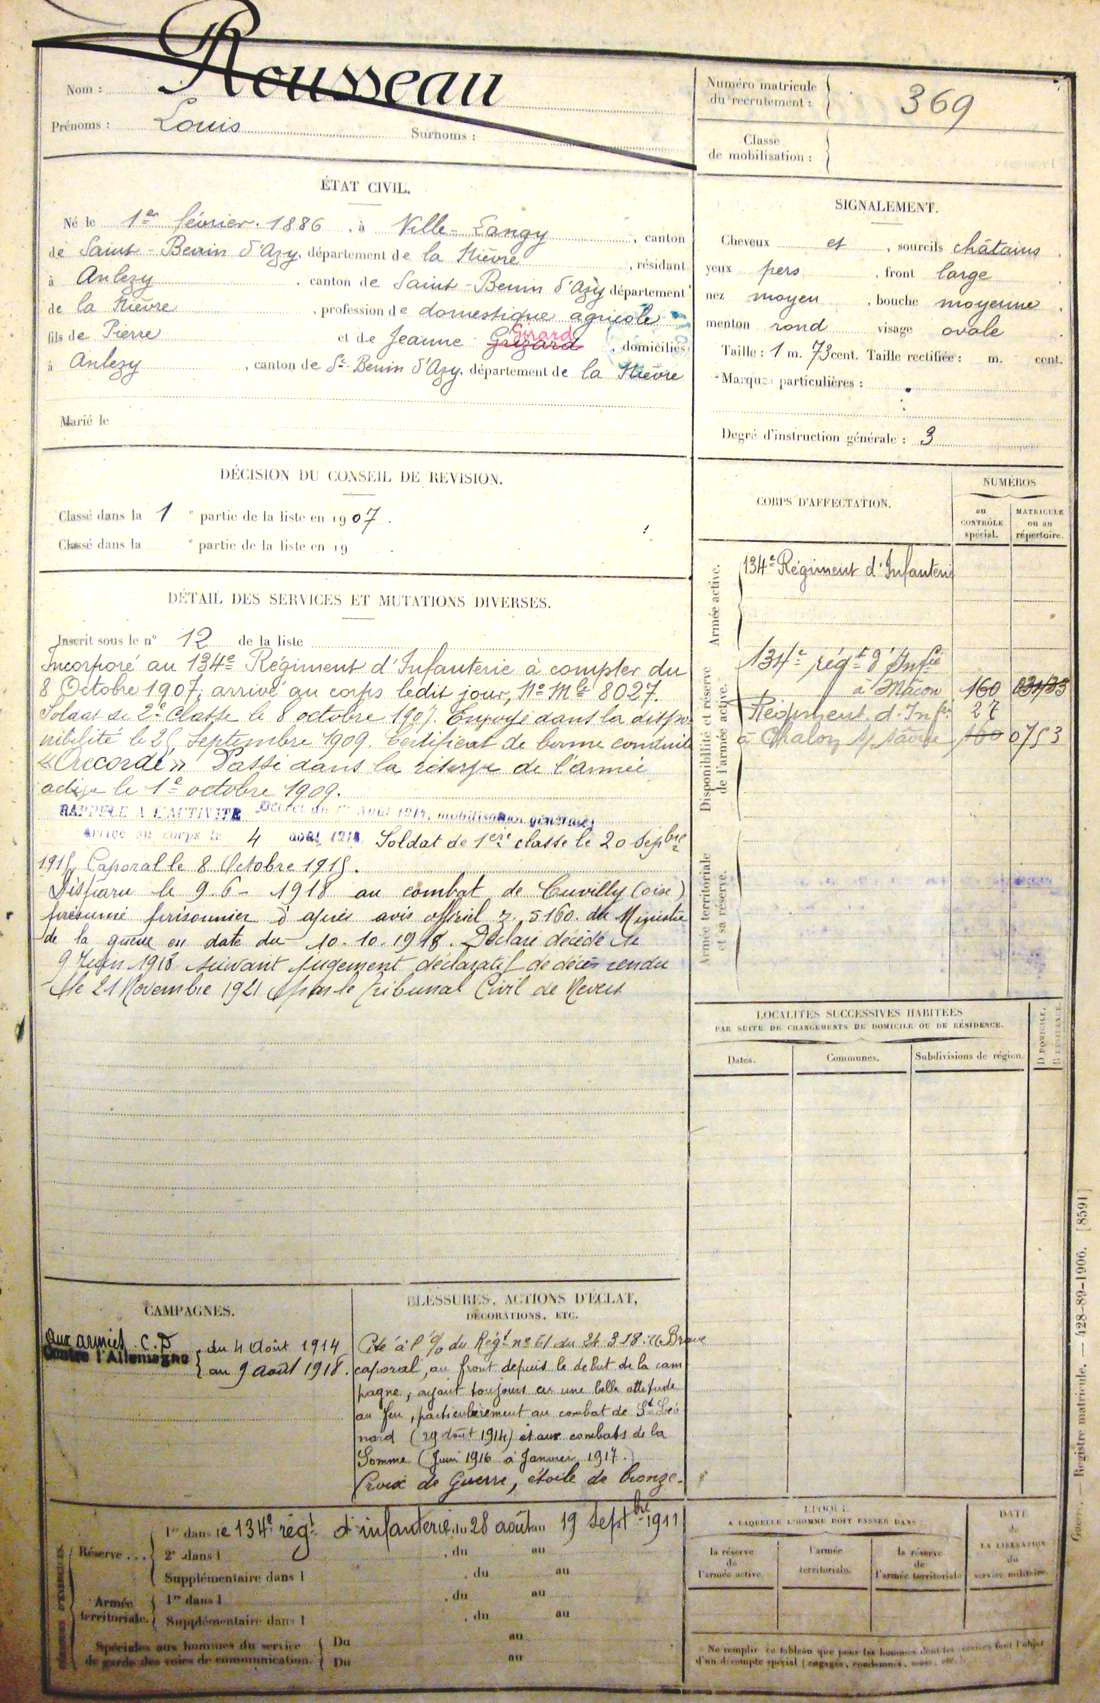 Nom : Rousseau
Prénoms : Louis Surnoms :
Numéro matricule du recrutement : 369
Classe de mobilisation :
ÉTAT CIVIL.
Né le 1er février 1886, à Ville-Langy, canton
de Saint-Benin d'Azy, département de la Nièvre, résidant
à Anlezy, canton de Saint-Benin d'Azy département
de la Nièvre, profession de domestique agricole
fils de Pierre et de Jeanne Girard, domiciliés
à Anlezy, canton de St-Benin d'Azy, département de la Nièvre
Marié le
SIGNALEMENT.
Cheveux et, sourcils châtains
yeux pers, front large
nez moyen, bouche moyenne
menton rond visage ovale
Taille : 1 m. 73 cent. Taille rectifiée : m. cent.
Marques particulières :
Degré d'instruction générale : 3
DÉCISION DU CONSEIL DE REVISION.
Classé dans la 1e partie de la liste en 1907.
Classé dans la e partie de la liste en 19 .
DÉTAIL DES SERVICES ET MUTATIONS DIVERSES.
Inscrit sous le n° 12 de la liste
Incorporé au 134e Régiment d'Infanterie à compter du
8 Octobre 1907, arrivé au corps ledit jour, No Mle 8027.
Soldat de 2e Classe le 8 octobre 1907. Envoyé dans la dispo
nibilité le 25 Septembre 1909. Certificat de bonne conduite
« Accordé » Passé dans la réserve de l'armée
active le 1er octobre 1909.
RAPPELÉ A L'ACTIVITÉ Décret du 1er Août 1914, mobilisation générale
Arrivé au corps le 4 août 1914 Soldat de 1ère classe le 20 Sepbre
1915, Caporal le 8 Octobre 1915.
Disparu le 9-6-1918 au combat de Cuvilly (oise)
présumé prisonnier d'après avis officiel 5160 du Ministre
de la guerre en date du 10.10.1918. Déclaré décédé le
9 Juin 1918 suivant jugement déclaratif de décès rendu
le 21 Novembre 1921 par le Tribunal Civil de Nevers
CORPS D'AFFECTATION.
NUMÉROS
au CONTRÔLE spécial.
MATRICULE ou au répertoire.
Armée active.
134e Régiment d'Infanterie
Disponibilité et réserve de l'armée active.
134e régt d'Infie
à Mâcon 160
Régiment d'Infie 27
à Chalon s/ Saône 160 0753
Armée territoriale et sa réserve.
LOCALITÉS SUCCESSIVES HABITÉES
PAR SUITE DE CHANGEMENTS DE DOMICILE OU DE RÉSIDENCE.
Dates. Communes. Subdivisions de région. D. DOMICILE, R. RÉSIDENCE.
CAMPAGNES.
aux armées C.D
Contre l'Allemagne
du 4 Août 1914
au 9 août 1918.
BLESSURES, ACTIONS D'ÉCLAT,
DÉCORATIONS, ETC.
Cité à l'o/ du Régt no 61 du 24.3.18 : Brave
caporal, au front depuis le début de la cam
pagne, ayant toujours eu une belle attitude
au feu, particulièrement au combat de St Léo
nard (29 août 1914) et aux combats de la
Somme (Juin 1916 à Janvier 1917.)
Croix de Guerre, étoile de bronze.
Réserve...
1re dans le 134e régt d'infanterie, du 28 août au 19 Septbre 1911
2e dans l , du au
Supplémentaire dans l , du au
Armée territoriale.
1re dans l , du au
Supplémentaire dans l , du au
Spéciales aux hommes du service
de garde des voies de communication.
Du au
Du au
ÉPOQUE
A LAQUELLE L'HOMME DOIT PASSER DANS
la réserve de l'armée active.
l'armée territoriale.
la réserve de l'armée territoriale.
DATE de LA LIBÉRATION du service militaire.
Ne remplir ce tableau que pour les hommes dont les services font l'objet
d'un décompte spécial (engagés, condamnés,
Registre matricule. — 428-89-1906. [8591]